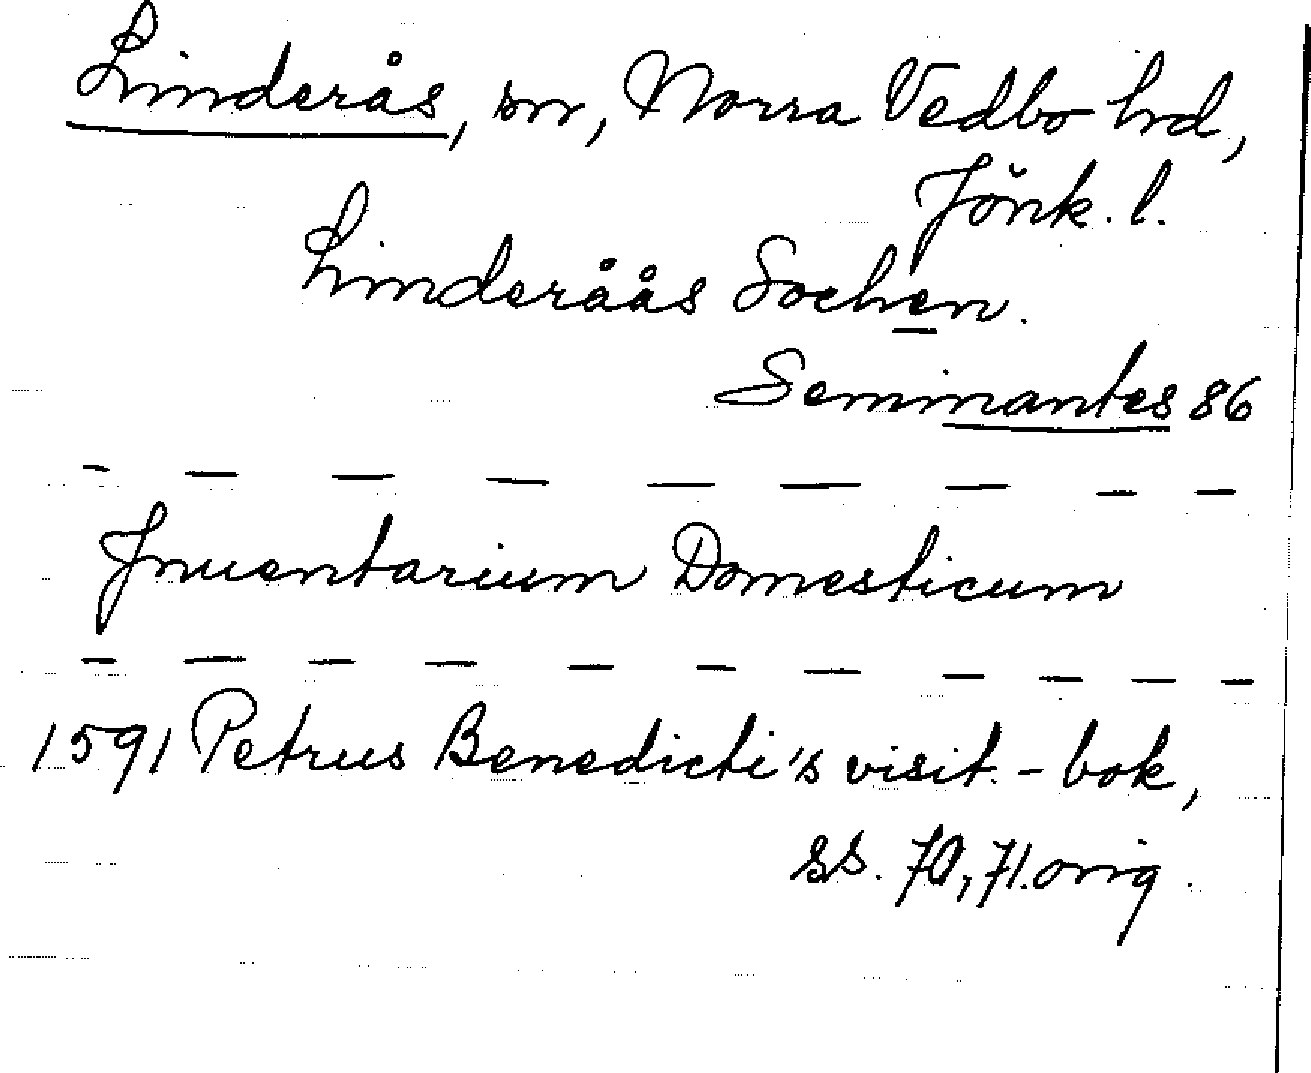 Linderås, sn, Norra Vedbo hrd,
Jönk. l.
Linderåås Sochen.
Seminantes 86
Inuentarium Domesticum
1591 Petrus Benedicti's visit.-bok,
ss. 70, 71. orig.